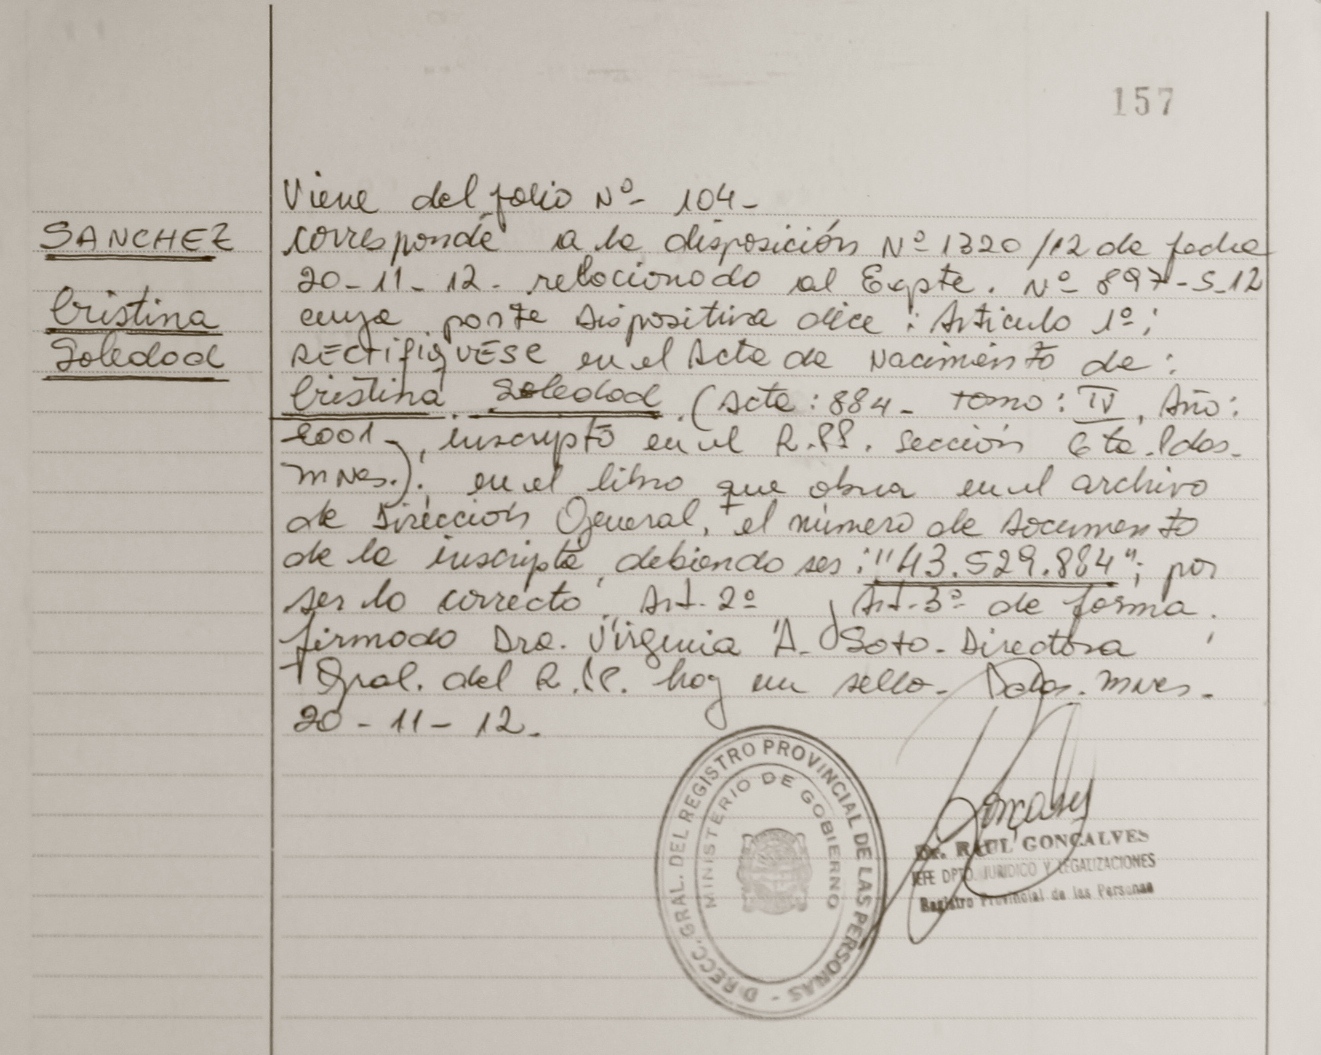 157
Viene del folio Nº- 104-
SANCHEZ
corresponde a la disposición Nº 1320/12 de fecha
20-11-12- relacionado al Expte. Nº 897-S-12
Cristina
cuya parte dispositiva dice: Artículo 1º;
Soledad
RECTIFIQUESE en el Acta de Nacimiento de:
Cristina Soledad (Acta: 884- tomo: IV, Año:
2001-, inscripta en el R.PP. Sección 6ta. Pdas.
mnes.); en el libro que obra en el archivo
de Dirección General, el número de documento
de la inscripta, debiendo ser: "43.529.884"; por
ser lo correcto. Art. 2º y Art. 3º de forma.
firmado Dra. Virginia A. Soto. Directora
Gral. del R.PP. hay un sello- Pdas. mnes.
20-11-12.
DIRECC. GRAL. DEL REGISTRO PROVINCIAL DE LAS PERSONAS -
MINISTERIO DE GOBIERNO
Dr. RAUL GONÇALVES
JEFE DPTO. JURIDICO Y LEGALIZACIONES
Registro Provincial de las Personas